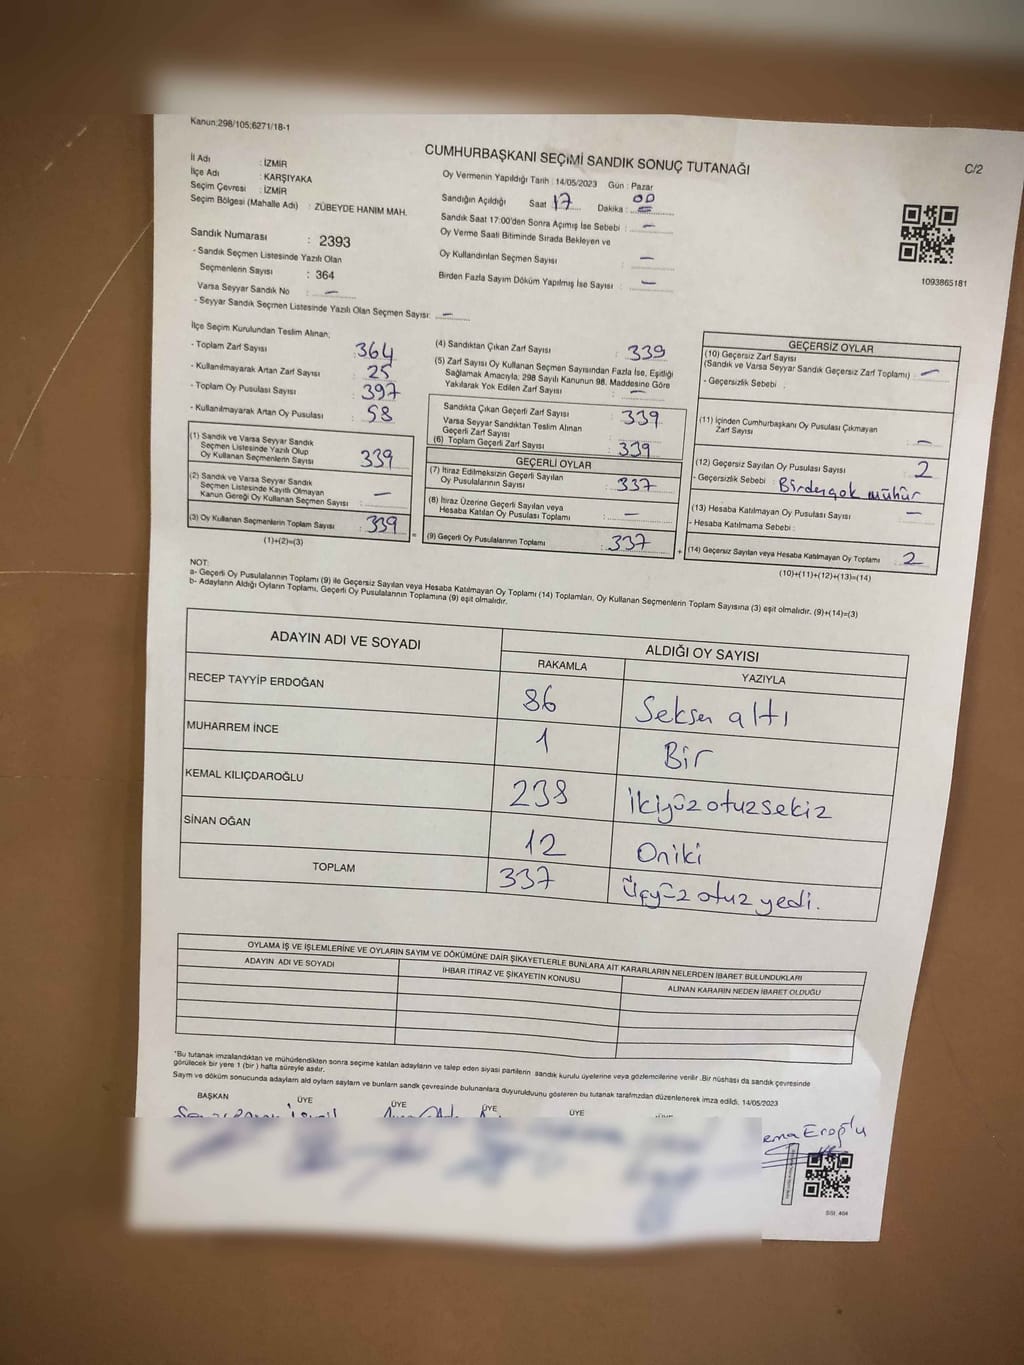 Kanun;298/105;6271/18-1
CUMHURBAŞKANI SEÇİMİ SANDIK SONUÇ TUTANAĞI
C/2
İl Adı : İZMİR
İlçe Adı : KARŞIYAKA
Seçim Çevresi : İZMİR
Seçim Bölgesi (Mahalle Adı) : ZÜBEYDE HANIM MAH.
Sandık Numarası : 2393
- Sandık Seçmen Listesinde Yazılı Olan
Seçmenlerin Sayısı : 364
Varsa Seyyar Sandık No : —
- Seyyar Sandık Seçmen Listesinde Yazılı Olan Seçmen Sayısı: —
Oy Vermenin Yapıldığı Tarih : 14/05/2023 Gün : Pazar
Sandığın Açıldığı Saat 17 Dakika : 00
Sandık Saat 17:00'den Sonra Açımış İse Sebebi : —
Oy Verme Saati Bitiminde Sırada Bekleyen ve
Oy Kullandırılan Seçmen Sayısı : —
Birden Fazla Sayım Döküm Yapılmış İse Sayısı : —
1093865181
İlçe Seçim Kurulundan Teslim Alınan;
- Toplam Zarf Sayısı : 364
- Kullanılmayarak Artan Zarf Sayısı : 25
- Toplam Oy Pusulası Sayısı : 397
- Kullanılmayarak Artan Oy Pusulası : 58
(1) Sandık ve Varsa Seyyar Sandık
Seçmen Listesinde Yazılı Olup
Oy Kullanan Seçmenlerin Sayısı : 339
(2) Sandık ve Varsa Seyyar Sandık
Seçmen Listesinde Kayıtlı Olmayan
Kanun Gereği Oy Kullanan Seçmen Sayısı : —
(3) Oy Kullanan Seçmenlerin Toplam Sayısı : 339
(1)+(2)=(3)
(4) Sandıktan Çıkan Zarf Sayısı : 339
(5) Zarf Sayısı Oy Kullanan Seçmen Sayısından Fazla İse, Eşitliği
Sağlamak Amacıyla, 298 Sayılı Kanunun 98. Maddesine Göre
Yakılarak Yok Edilen Zarf Sayısı : —
Sandıkta Çıkan Geçerli Zarf Sayısı : 339
Varsa Seyyar Sandıktan Teslim Alınan
Geçerli Zarf Sayısı :
(6) Toplam Geçerli Zarf Sayısı : 339
GEÇERLİ OYLAR
(7) İtiraz Edilmeksizin Geçerli Sayılan
Oy Pusulalarının Sayısı : 337
(8) İtiraz Üzerine Geçerli Sayılan veya
Hesaba Katılan Oy Pusulası Toplamı : —
(9) Geçerli Oy Pusulalarının Toplamı : 337
GEÇERSİZ OYLAR
(10) Geçersiz Zarf Sayısı
(Sandık ve Varsa Seyyar Sandık Geçersiz Zarf Toplamı) : —
- Geçersizlik Sebebi :
(11) İçinden Cumhurbaşkanı Oy Pusulası Çıkmayan
Zarf Sayısı : —
(12) Geçersiz Sayılan Oy Pusulası Sayısı : 2
- Geçersizlik Sebebi : Birdençok mühür
(13) Hesaba Katılmayan Oy Pusulası Sayısı : —
- Hesaba Katılmama Sebebi :
(14) Geçersiz Sayılan veya Hesaba Katılmayan Oy Toplamı : 2
(10)+(11)+(12)+(13)=(14)
NOT:
a- Geçerli Oy Pusulalarının Toplamı (9) ile Geçersiz Sayılan veya Hesaba Katılmayan Oy Toplamı (14) Toplamları, Oy Kullanan Seçmenlerin Toplam Sayısına (3) eşit olmalıdır. (9)+(14)=(3)
b- Adayların Aldığı Oyların Toplamı, Geçerli Oy Pusulalarının Toplamına (9) eşit olmalıdır.
ADAYIN ADI VE SOYADI
ALDIĞI OY SAYISI
RAKAMLA YAZIYLA
RECEP TAYYİP ERDOĞAN 86 Seksen altı
MUHARREM İNCE 1 Bir
KEMAL KILIÇDAROĞLU 238 İkiyüz otuzsekiz
SİNAN OĞAN 12 Oniki
TOPLAM 337 Üçyüz otuz yedi.
OYLAMA İŞ VE İŞLEMLERİNE VE OYLARIN SAYIM VE DÖKÜMÜNE DAİR ŞİKAYETLERLE BUNLARA AİT KARARLARIN NELERDEN İBARET BULUNDUKLARI
ADAYIN ADI VE SOYADI İHBAR İTİRAZ VE ŞİKAYETİN KONUSU ALINAN KARARIN NEDEN İBARET OLDUĞU
*Bu tutanak imzalandıktan ve mühürlendikten sonra seçime katılan adayların ve talep eden siyasi partilerin sandık kurulu üyelerine veya gözlemcilerine verilir .Bir nüshası da sandık çevresinde
görülecek bir yere 1 (bir ) hafta süreyle asılır.
Sayım ve döküm sonucunda adayların ald oyların sayları ve bunların sandk çevresinde bulunanlara duyurulduunu gösteren bu tutanak tarafımzdan düzenlenerek imza edildi. 14/05/2023
BAŞKAN ÜYE ÜYE ÜYE ÜYE
ema Eroğlu